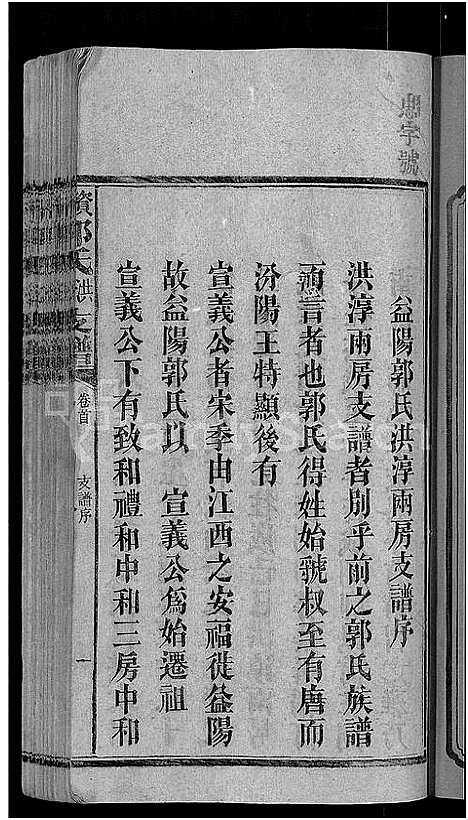 益陽郭氏洪淳兩房支譜序
洪淳兩房支譜者別乎前之郭氏族譜
而言者也郭氏得姓始虢叔至有唐而
汾陽王特顯後有
宣義公者宋季由江西之安福徙益陽
故益陽郭氏以 宣義公爲始遷祖
宣義公下有致和禮和中和三房中和
資郭氏洪支譜
卷首
支譜序
一
思字號